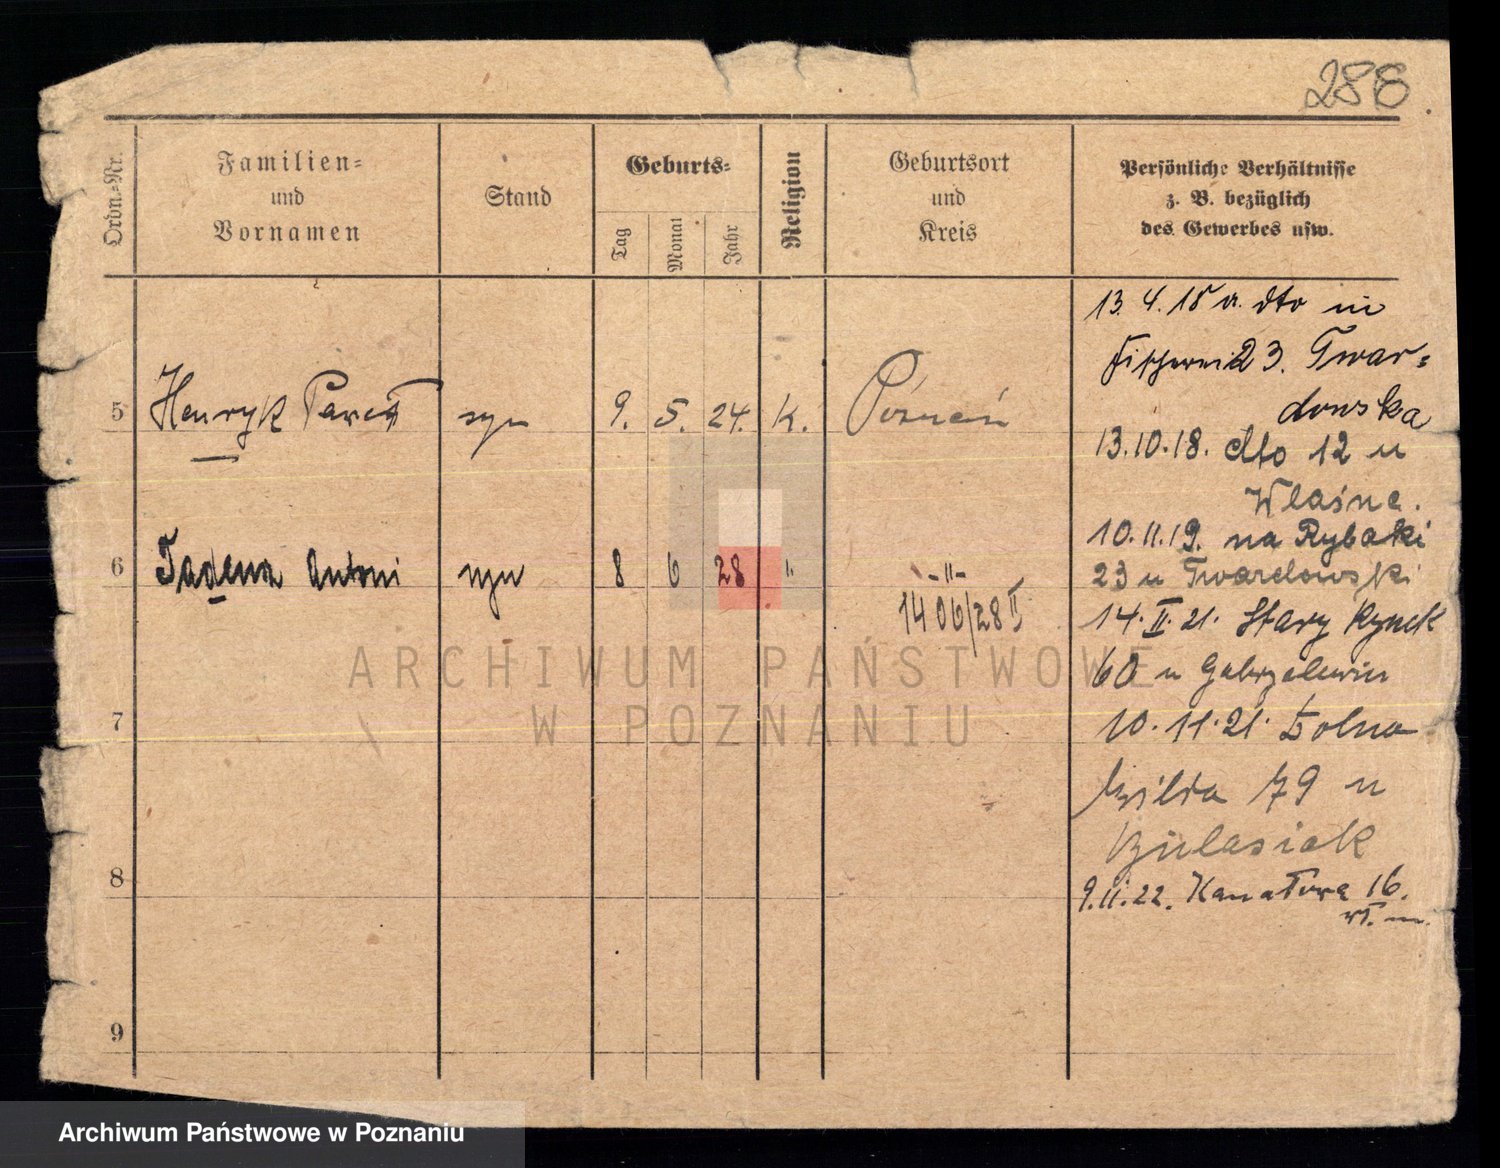 288
Ordn.-Nr.
Familien-
und
Vornamen
Stand
Geburts-
Tag
Monat
Jahr
Religion
Geburtsort
und
Kreis
Persönliche Verhältnisse
z. B. bezüglich
des Gewerbes usw.
5 Henryk Paweł syn 9. 5. 24. K. Poznań
6 Antoni syn 8 6 28 " -"-
14 06/28 II
7
8
9
13. 4. 18 a. dto in
Fischerei 23. Twar-
dowska
13.10.18. dto 12 u
Własne.
10.11.19. na Rybaki
23 u Twardowski
14. II. 21. Stary Rynek
60 u
10. 11. 21. Dolna
Wilda 79 u
9.11.22. Kanałowa 16.
ARCHIWUM PAŃSTWOWE
W POZNANIU
Archiwum Państwowe w Poznaniu